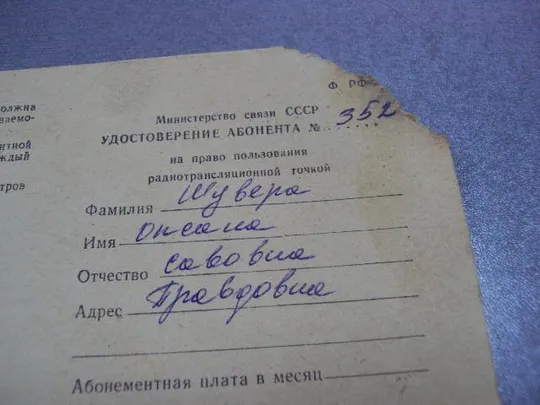 олжна
ваемо-
нтной
ждый
тров
Ф РФ
Министерство связи СССР
УДОСТОВЕРЕНИЕ АБОНЕНТА № 352
на право пользования
радиотрансляционной точкой
Фамилия Шувера
Имя Оксана
Отчество Савовна
Адрес Правдовна
Абонементная плата в месяц